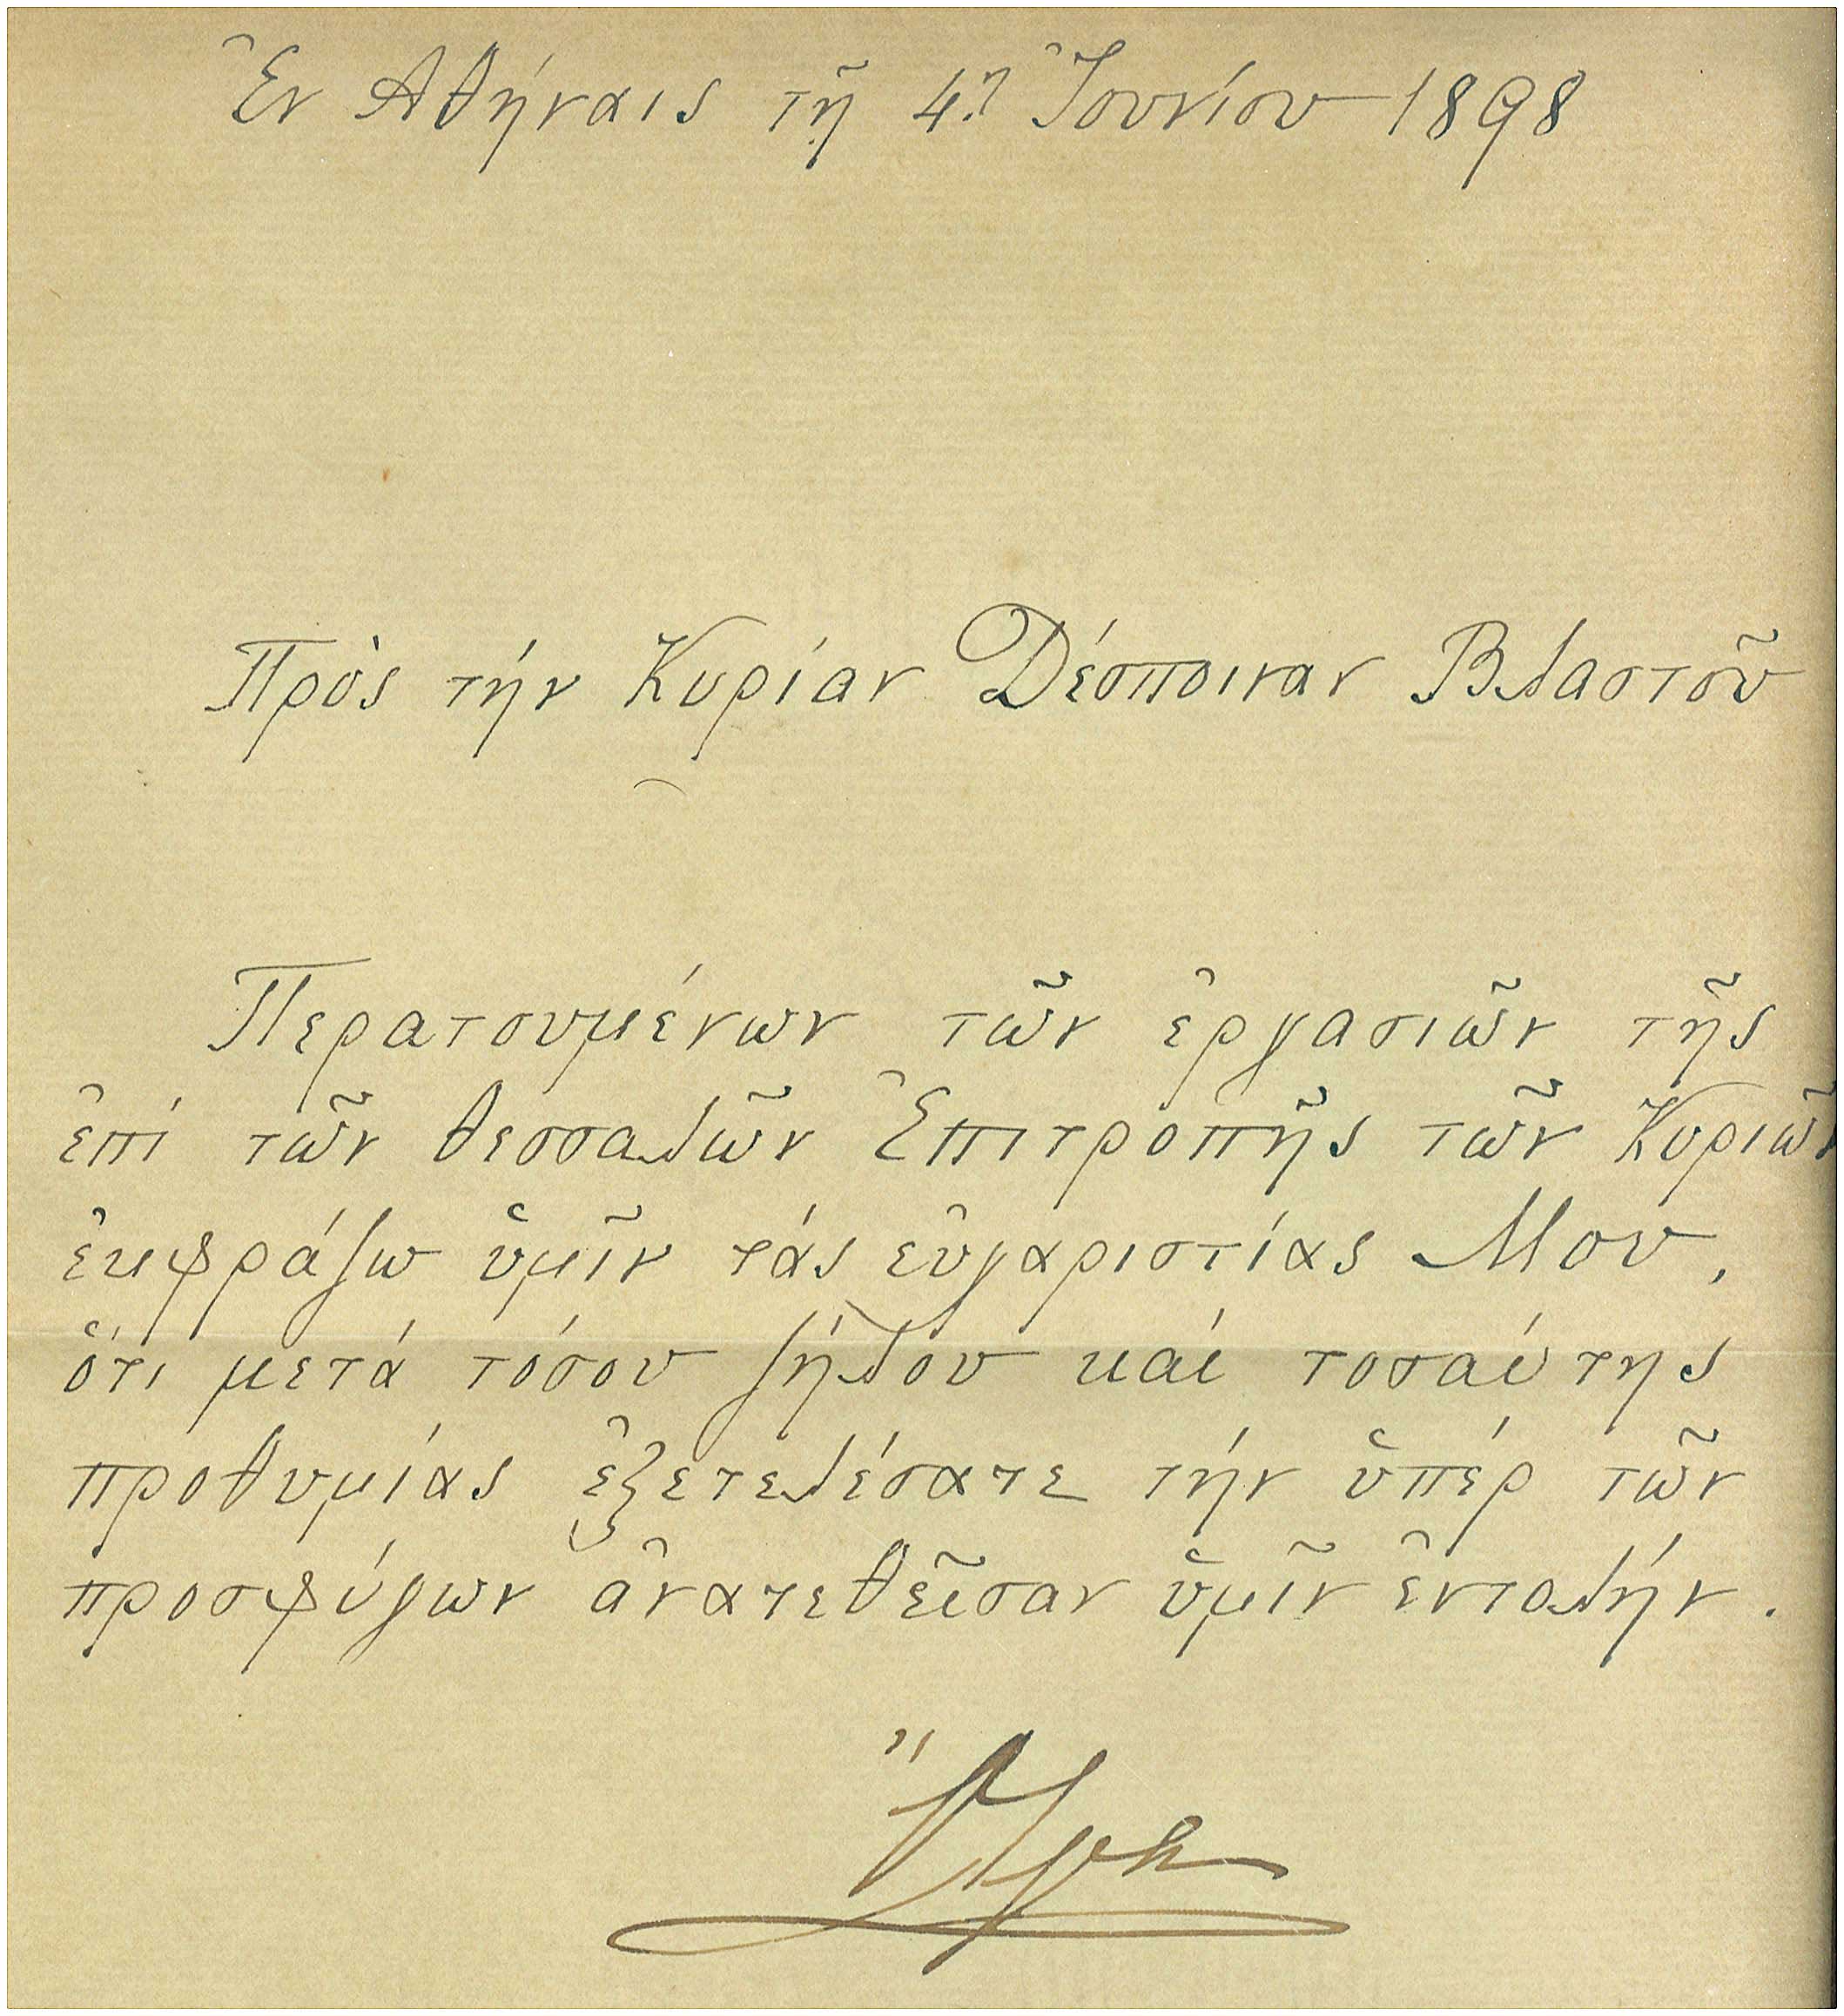 Ἐν Ἀθήναις τῇ 4ῃ Ἰουνίου 1898
Πρὸς τήν Κυρίαν Δέσποιναν Βλαστοῦ
Περατουμένων τῶν ἐργασιῶν τῆς
ἐπί τῶν Θεσσαλῶν Ἐπιτροπῆς τῶν Κυριῶν
ἐκφράζω ὑμῖν τάς εὐχαριστίας Μου,
ὅτι μετά τόσου ζήλου καί τοσαύτης
προθυμίας ἐξετελέσατε τήν ὑπέρ τῶν
προσφύγων ἀνατεθεῖσαν ὑμῖν ἐντολήν.